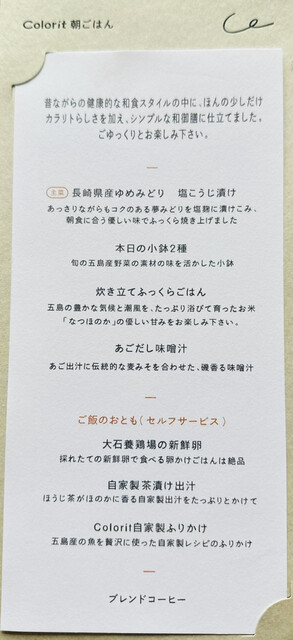 Colorit 朝ごはん
昔ながらの健康的な和食スタイルの中に、ほんの少しだけ
カラリトらしさを加え、シンプルな和御膳に仕立てました。
ごゆっくりとお楽しみ下さい。
主菜 長崎県産ゆめみどり 塩こうじ漬け
あっさりながらもコクのある夢みどりを塩麹に漬けこみ、
朝食に合う優しい味でふっくら焼き上げました
本日の小鉢2種
旬の五島産野菜の素材の味を活かした小鉢
炊き立てふっくらごはん
五島の豊かな気候と潮風を、たっぷり浴びて育ったお米
「なつほのか」の優しい甘みをお楽しみ下さい。
あごだし味噌汁
あご出汁に伝統的な麦みそを合わせた、磯香る味噌汁
ご飯のおとも(セルフサービス)
大石養鶏場の新鮮卵
採れたての新鮮卵で食べる卵かけごはんは絶品
自家製茶漬け出汁
ほうじ茶がほのかに香る自家製出汁をたっぷりとかけて
Colorit自家製ふりかけ
五島産の魚を贅沢に使った自家製レシピのふりかけ
ブレンドコーヒー